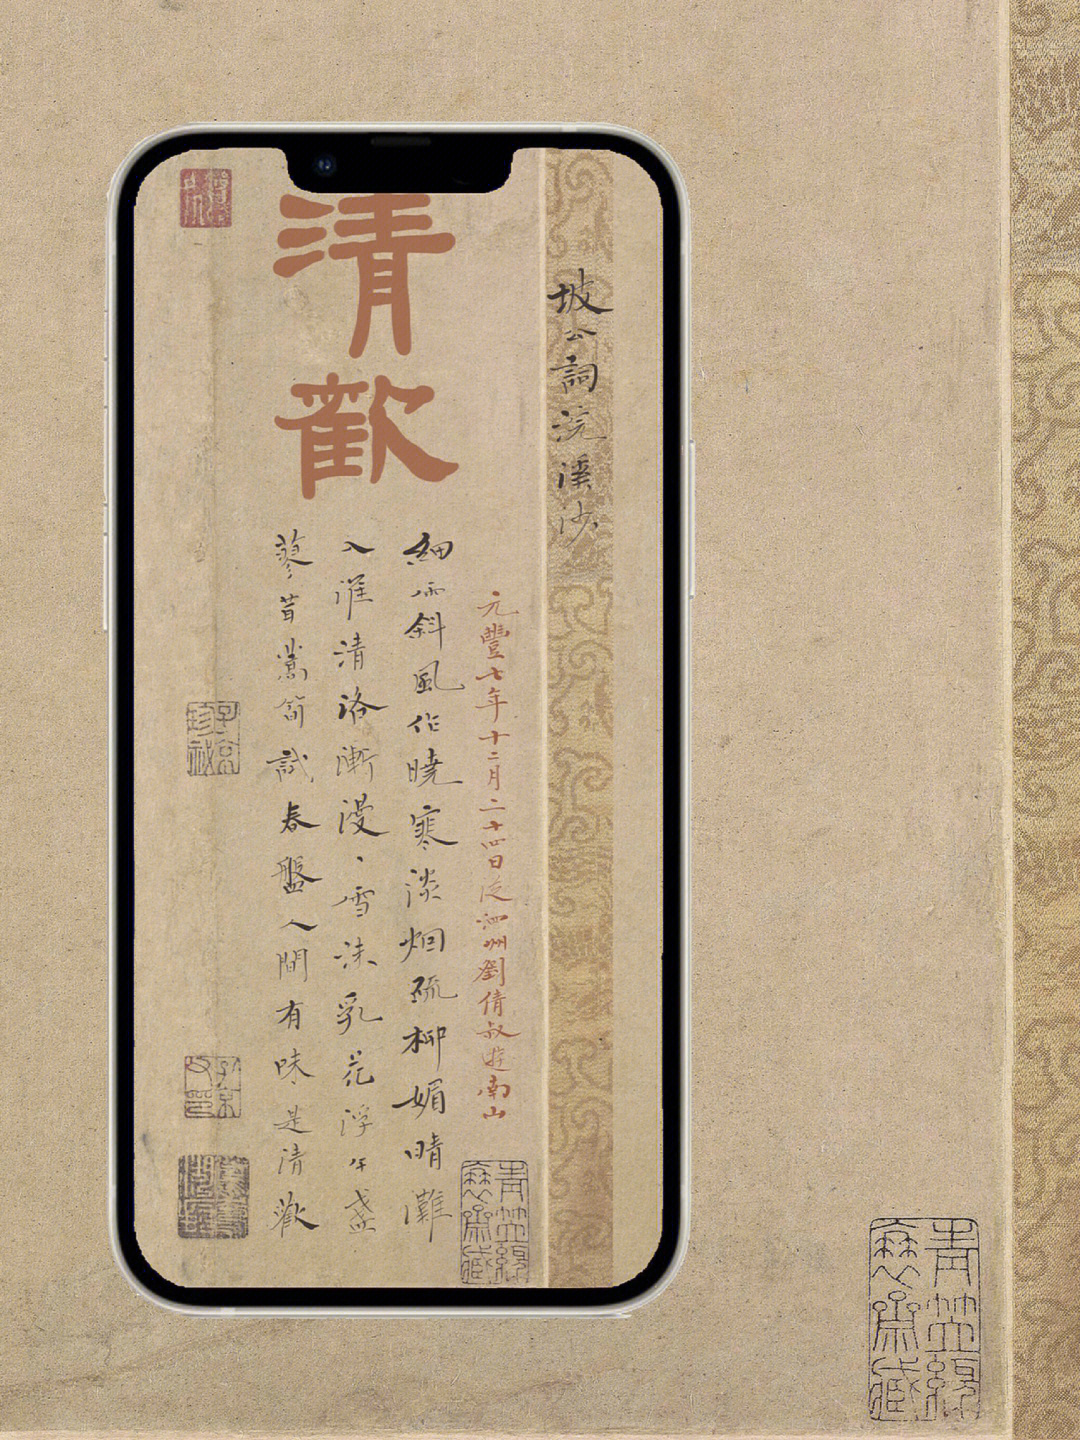 坡公詞浣溪沙
元豐七年十二月二十四日從泗州劉倩叔遊南山
清歡
細雨斜風作曉寒淡烟疏柳媚晴灘
入淮清洛漸漫、雪沫乳花浮午盞
蓼茸蒿筍試春盤人間有味是清歡
子京
珍秘
子京
父印